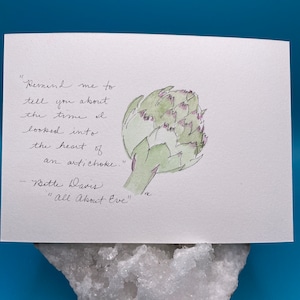 "Remind me to
tell you about
the time I
looked into
the heart of
an artichoke."
- Bette Davis
"All About Eve"